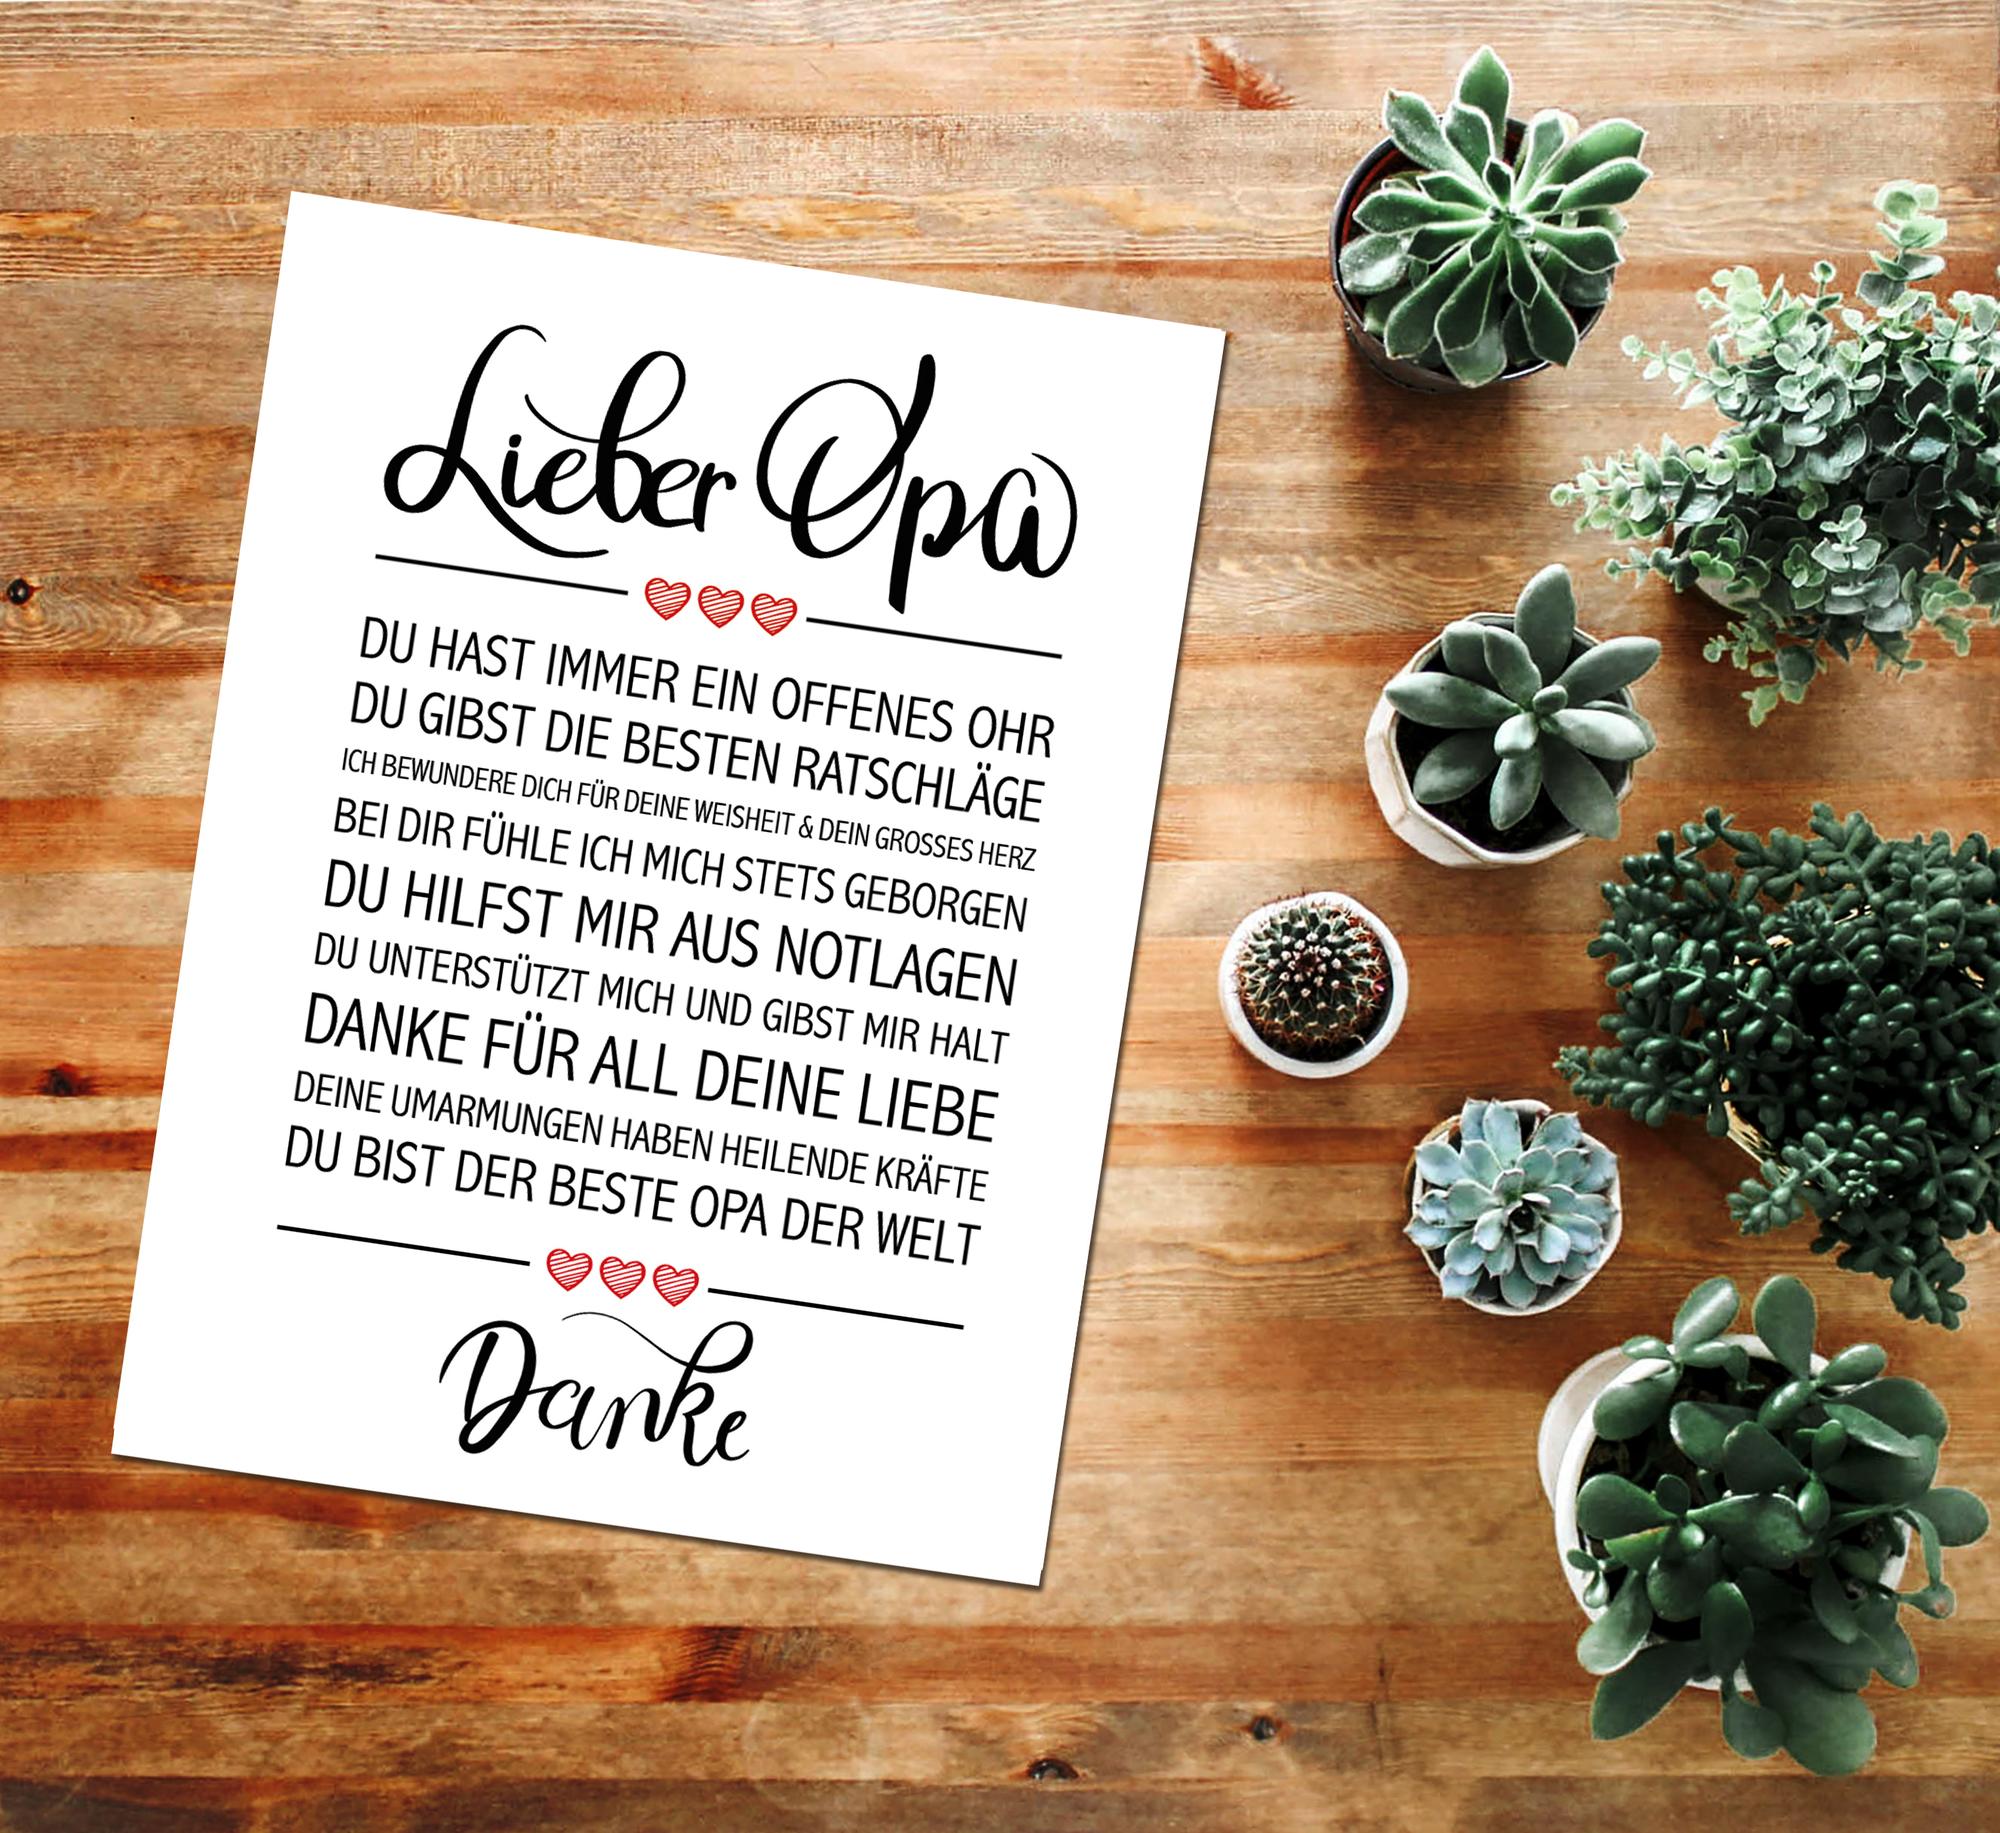 Lieber Opa
DU HAST IMMER EIN OFFENES OHR
DU GIBST DIE BESTEN RATSCHLÄGE
ICH BEWUNDERE DICH FÜR DEINE WEISHEIT & DEIN GROSSES HERZ
BEI DIR FÜHLE ICH MICH STETS GEBORGEN
DU HILFST MIR AUS NOTLAGEN
DU UNTERSTÜTZT MICH UND GIBST MIR HALT
DANKE FÜR ALL DEINE LIEBE
DEINE UMARMUNGEN HABEN HEILENDE KRÄFTE
DU BIST DER BESTE OPA DER WELT
Danke